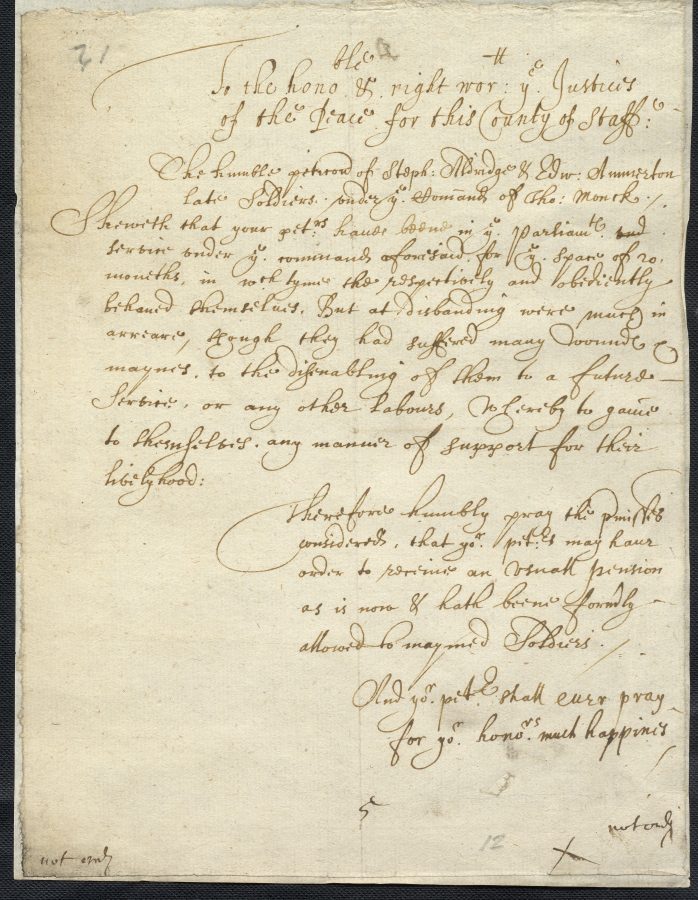 21
To the hono^ble & right wor^ll: y^e Justices
of the Peace for this County of Staff:
The humble peticon of Steph: Aldridge & Edw: Ammerton
late Soldiers under y^e Comand of Tho: Monck /.
Sheweth that your pet^rs haue beene in y^e Parliam^ts
service under y^e command aforesaid for y^e space of 20.
moneths, in w^ch tyme the respectively and obediently
behaued themselues. But at disbanding were much in
arreare, though they had suffered many wounds &
maymes, to the disenabling of them to a future
Service, or any other labours, Whereby to gaine
to themselves any manner of support for their
livelyhood:
Therefore humbly pray the p^rmisses
considered, that yo^r pet^rs may haue
order to receiue an vsuall pension
as is now & hath beene form^rly
allowed to maymed Soldiers /
And yo^r pet^rs shall euer pray
for yo^r hono^rs much happines
5
12
not ord
X
not ord